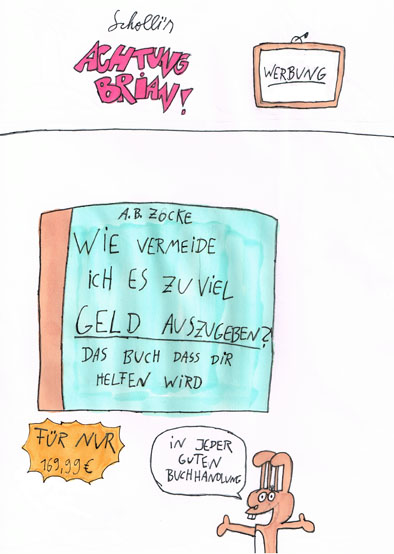 Scholli's
ACHTUNG
BRIAN!
WERBUNG
A.B. ZOCKE
WIE VERMEIDE
ICH ES ZU VIEL
GELD AUSZUGEBEN?
DAS BUCH DASS DIR
HELFEN WIRD
FÜR NUR
169,99 €
IN JEDER
GUTEN
BUCHHANDLUNG